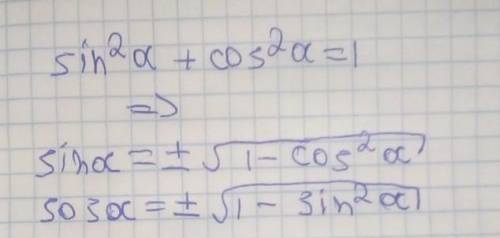 sin²α + cos²α = 1
=>
sinα = ± √(1 - cos²α)
cosα = ± √(1 - sin²α)